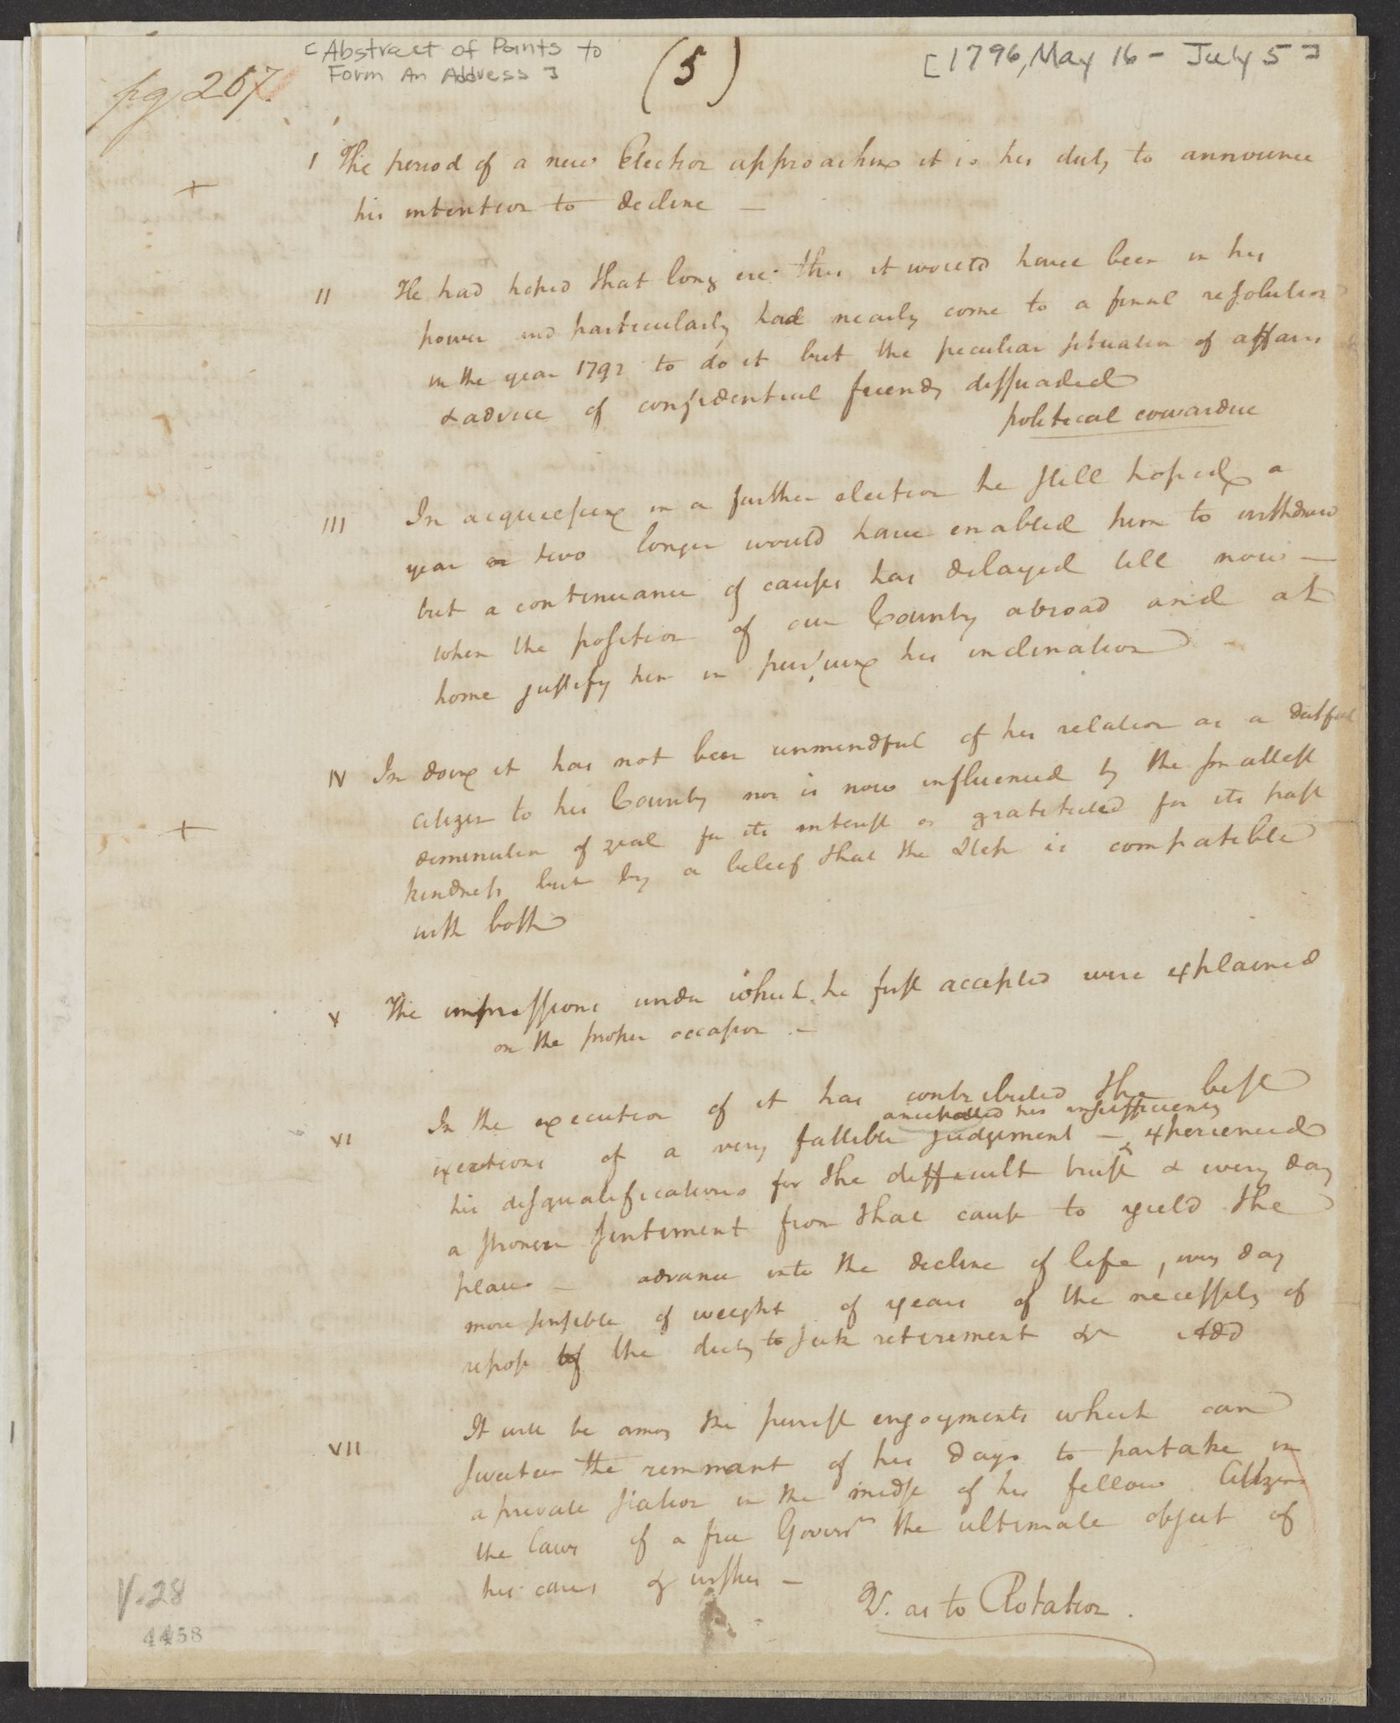 [Abstract of Points to
Form An Address]
(5)
[1796, May 16 - July 5]
pg 267.
I The period of a new Election approaching it is his duty to announce
his intention to decline —
II He had hoped that long ere this it would have been in his
power and particularly had nearly come to a final resolution
in the year 1792 to do it but the peculiar situation of affairs
& advice of confidential friends dissuaded
political cowardice
III In acquiescing in a further election he still hoped a
year or two longer would have enabled him to withdraw
but a continuance of causes has delayed till now —
when the position of our Country abroad and at
home justify him in pursuing his inclination
IV In doing it has not been unmindful of his relation as a dutiful
citizen to his Country nor is now influenced by the smallest
diminution of zeal for its interest or gratitude for its past
kindness but by a belief that the Step is compatible
with both
V The impressions under which he first accepted were explained
on the proper occasion. —
VI In the execution of it has contributed the best
anticipated his insufficiency
exertions of a very fallible judgement — & experienced
his disqualifications for the difficult trust & every day
a stronger sentiment from that cause to yield the
place — advance into the decline of life, every day
more sensible of weight of years of the necessity of
repose of the duty to seek retirement &c Add
VII It will be among the purest enjoyments which can
sweeten the remnant of his days to partake in
a private station in the midst of his fellow Citizens
the laws of a free Governm the ultimate object of
his cares & wishes —
V. as to Rotation.
V-28
4458